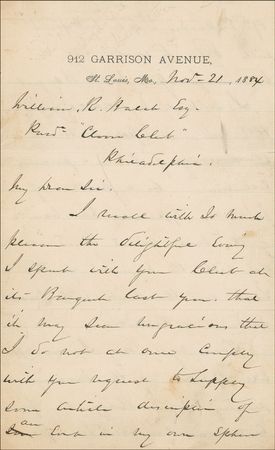 912 GARRISON AVENUE,
St. Louis, Mo., Nov. 21, 1884
William R. Balch Esq.
Presdt "Clover Club"
Philadelphia.
My Dear Sir.
I recall with so much
pleasure the delightful Evening
I spent with your Club at
its Banquet last year. that
it may seem ungracious that
I do not at once comply
with your request to supply
some article descriptive of
an Event in my own Sphere